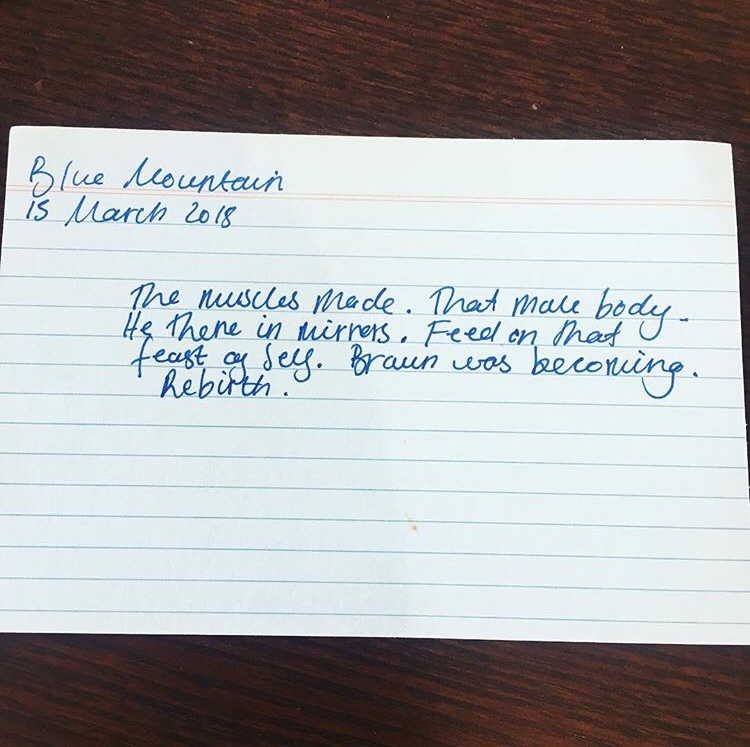 Blue Mountain
15 March 2018
The muscles made. That male body.
He there in mirrors. Feed on that
feast of self. Braun was becoming.
Rebirth.